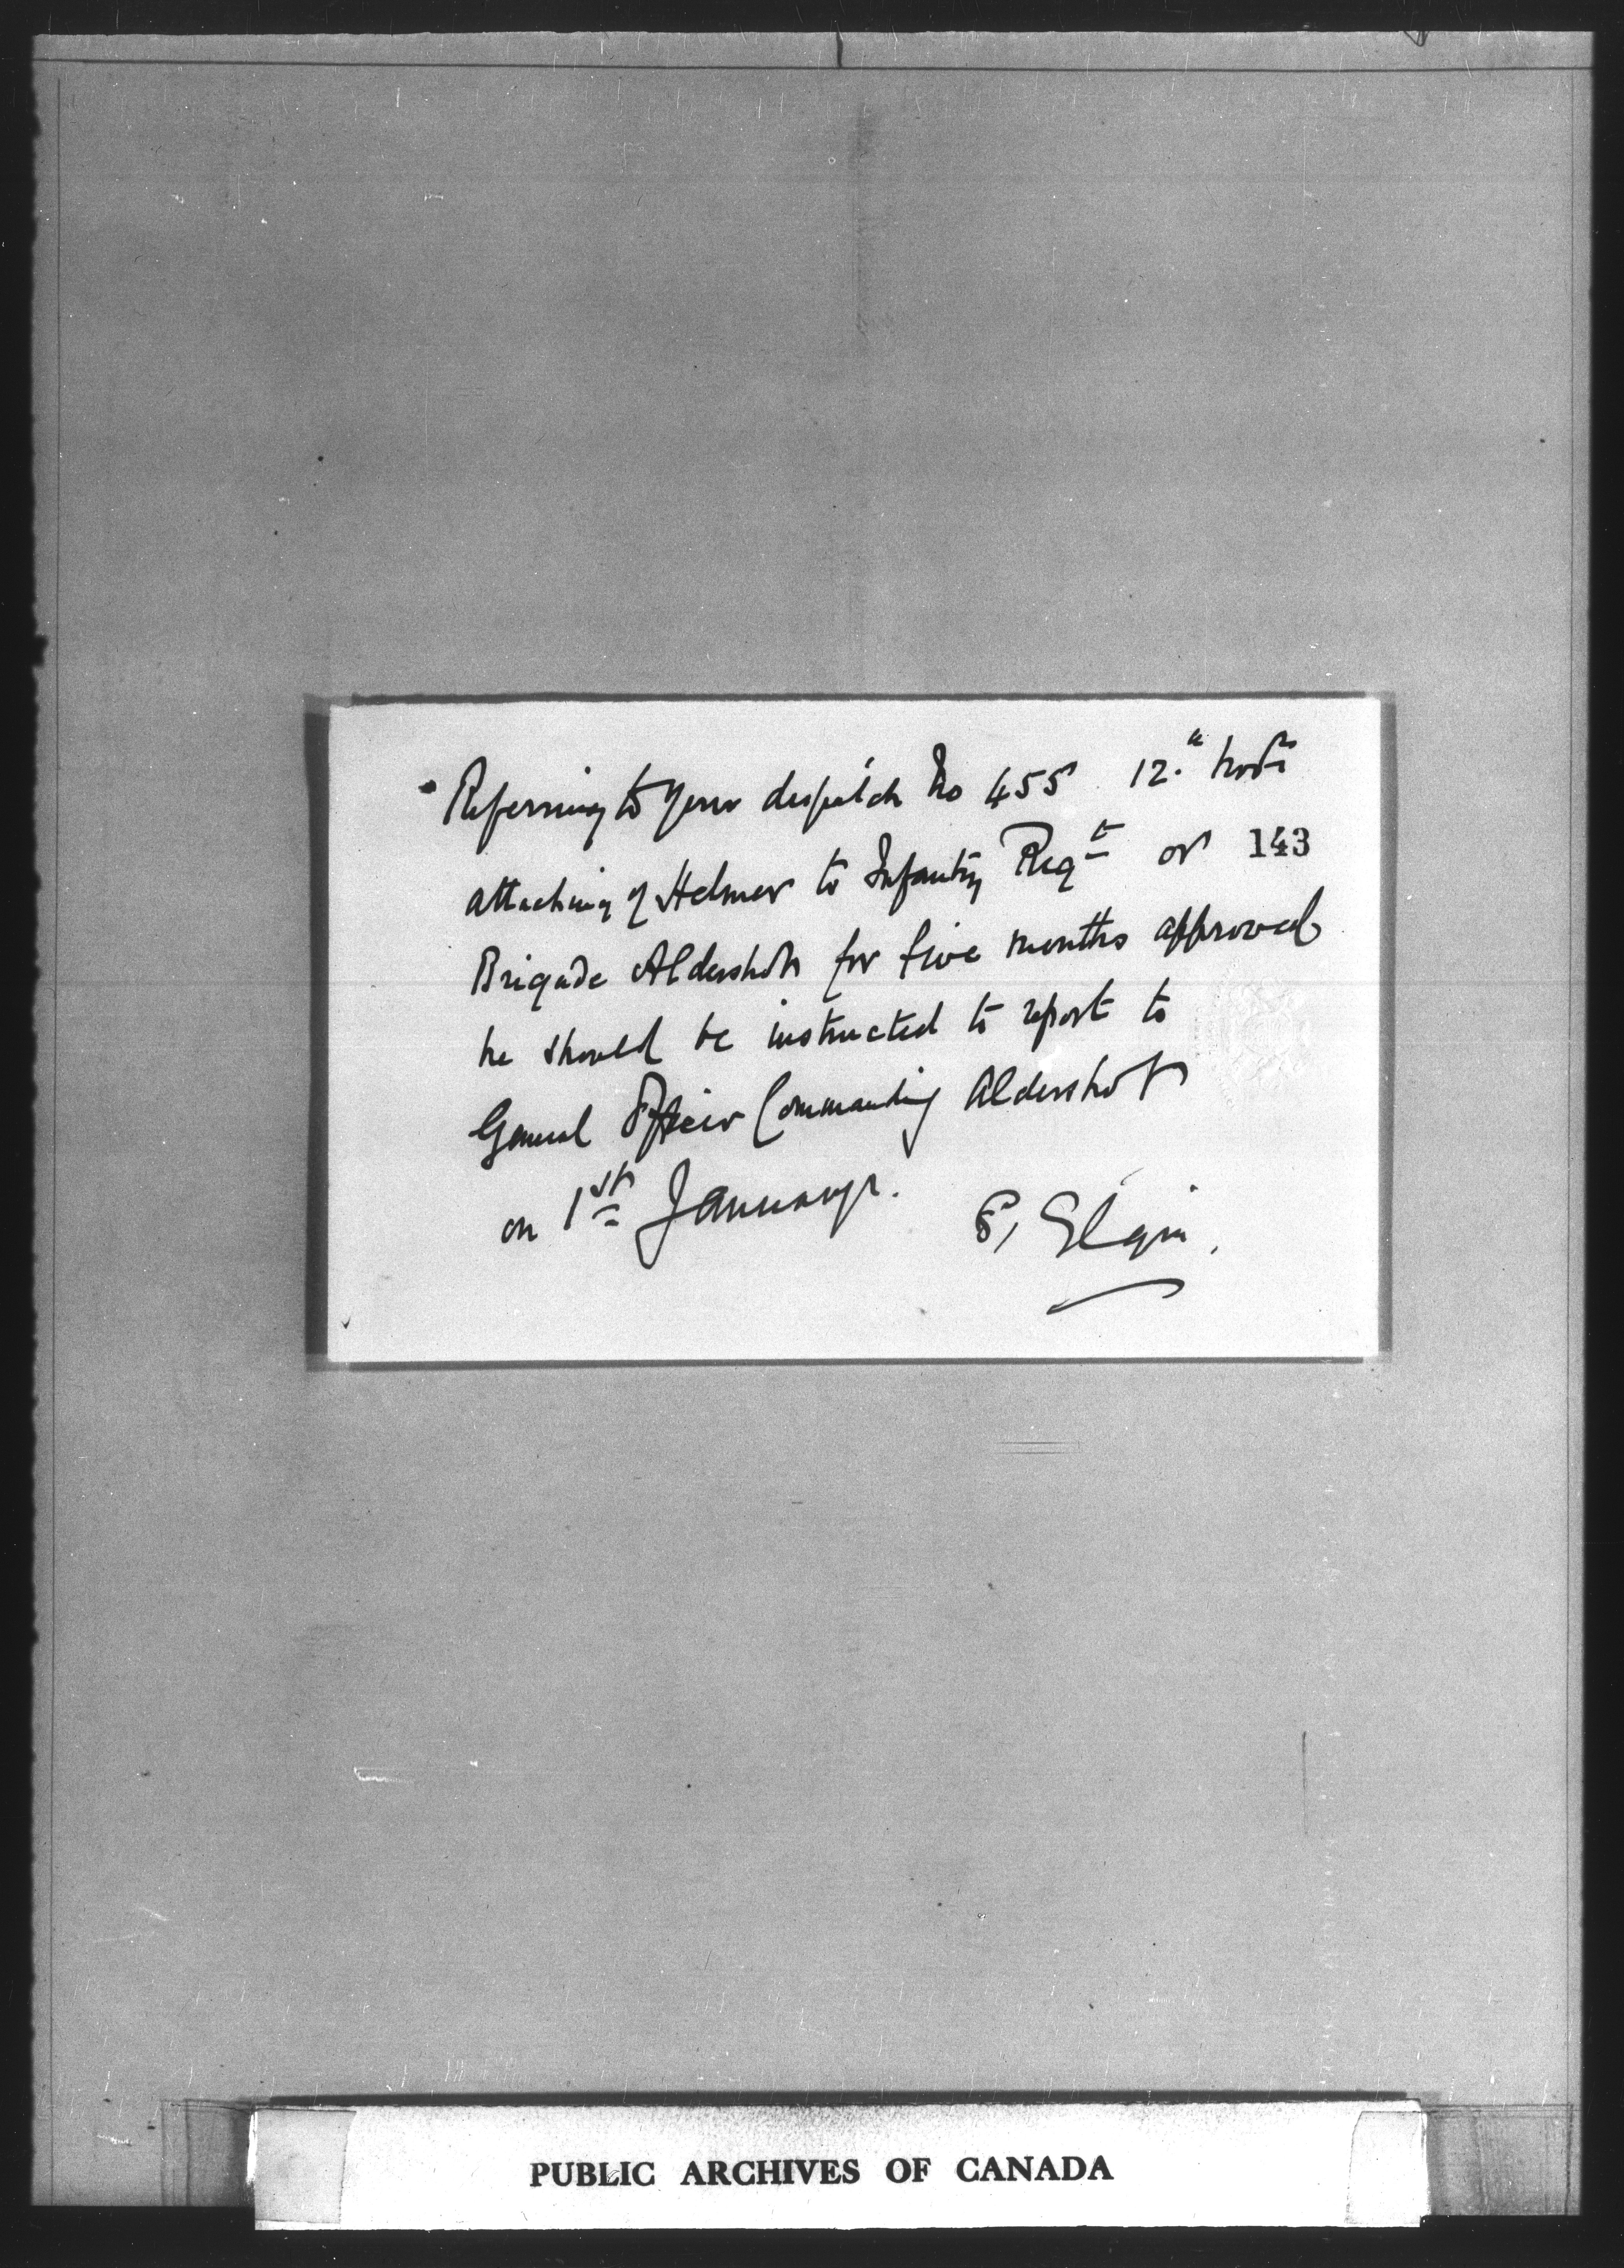 Referring to your despatch No 455 12.th Novr
attaching of Helmer to Infantry Regt or 143
Brigade Aldershot for five months approved
he should be instructed to report to
General Officer Commanding Aldershot
on 1st January.
S, Elgin.
PUBLIC ARCHIVES OF CANADA